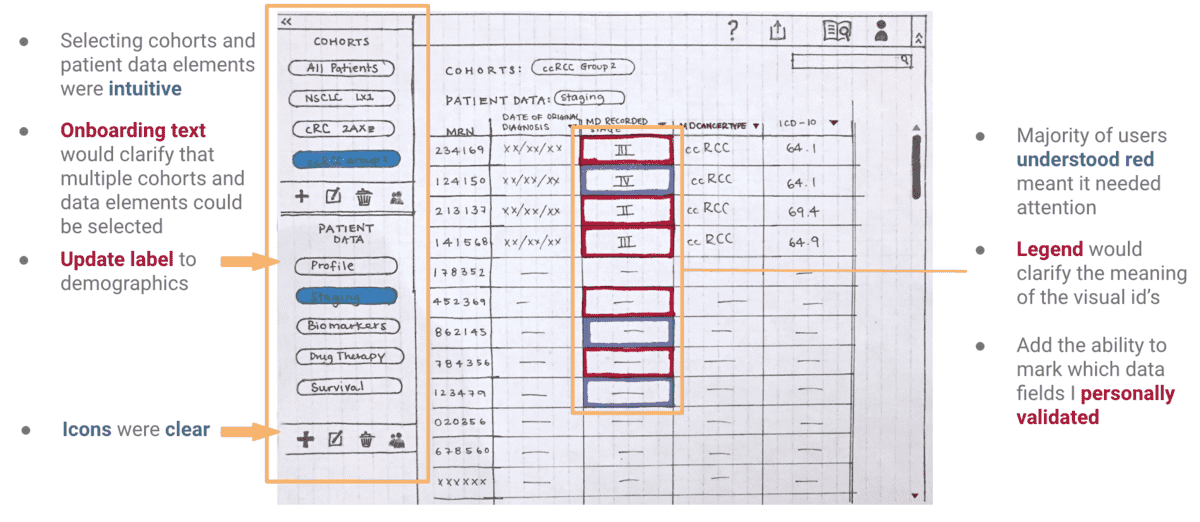 Selecting cohorts and
patient data elements
were intuitive
Onboarding text
would clarify that
multiple cohorts and
data elements could
be selected
Update label to
demographics
Icons were clear
«
COHORTS
All Patients
NSCLC Lx1
cRC 2AX2
ccRCC Group 2
PATIENT
DATA
Profile
Staging
Biomarkers
Drug Therapy
Survival
?
COHORTS: ccRCC Group 2
PATIENT DATA: Staging
MRN DATE OF ORIGINAL DIAGNOSIS MD RECORDED STAGE MDCANCERTYPE ICD-10
234169 xx/xx/xx III ccRCC 64.1
124150 xx/xx/xx IV ccRCC 64.1
213137 xx/xx/xx II ccRCC 69.4
141568 xx/xx/xx III ccRCC 64.9
178352 — — — —
452369 — — — —
862145 — — — —
784356 — — — —
123479 — — — —
020356 — — — —
678560 — — — —
xxxxxx — — — —
Majority of users
understood red
meant it needed
attention
Legend would
clarify the meaning
of the visual id's
Add the ability to
mark which data
fields I personally
validated